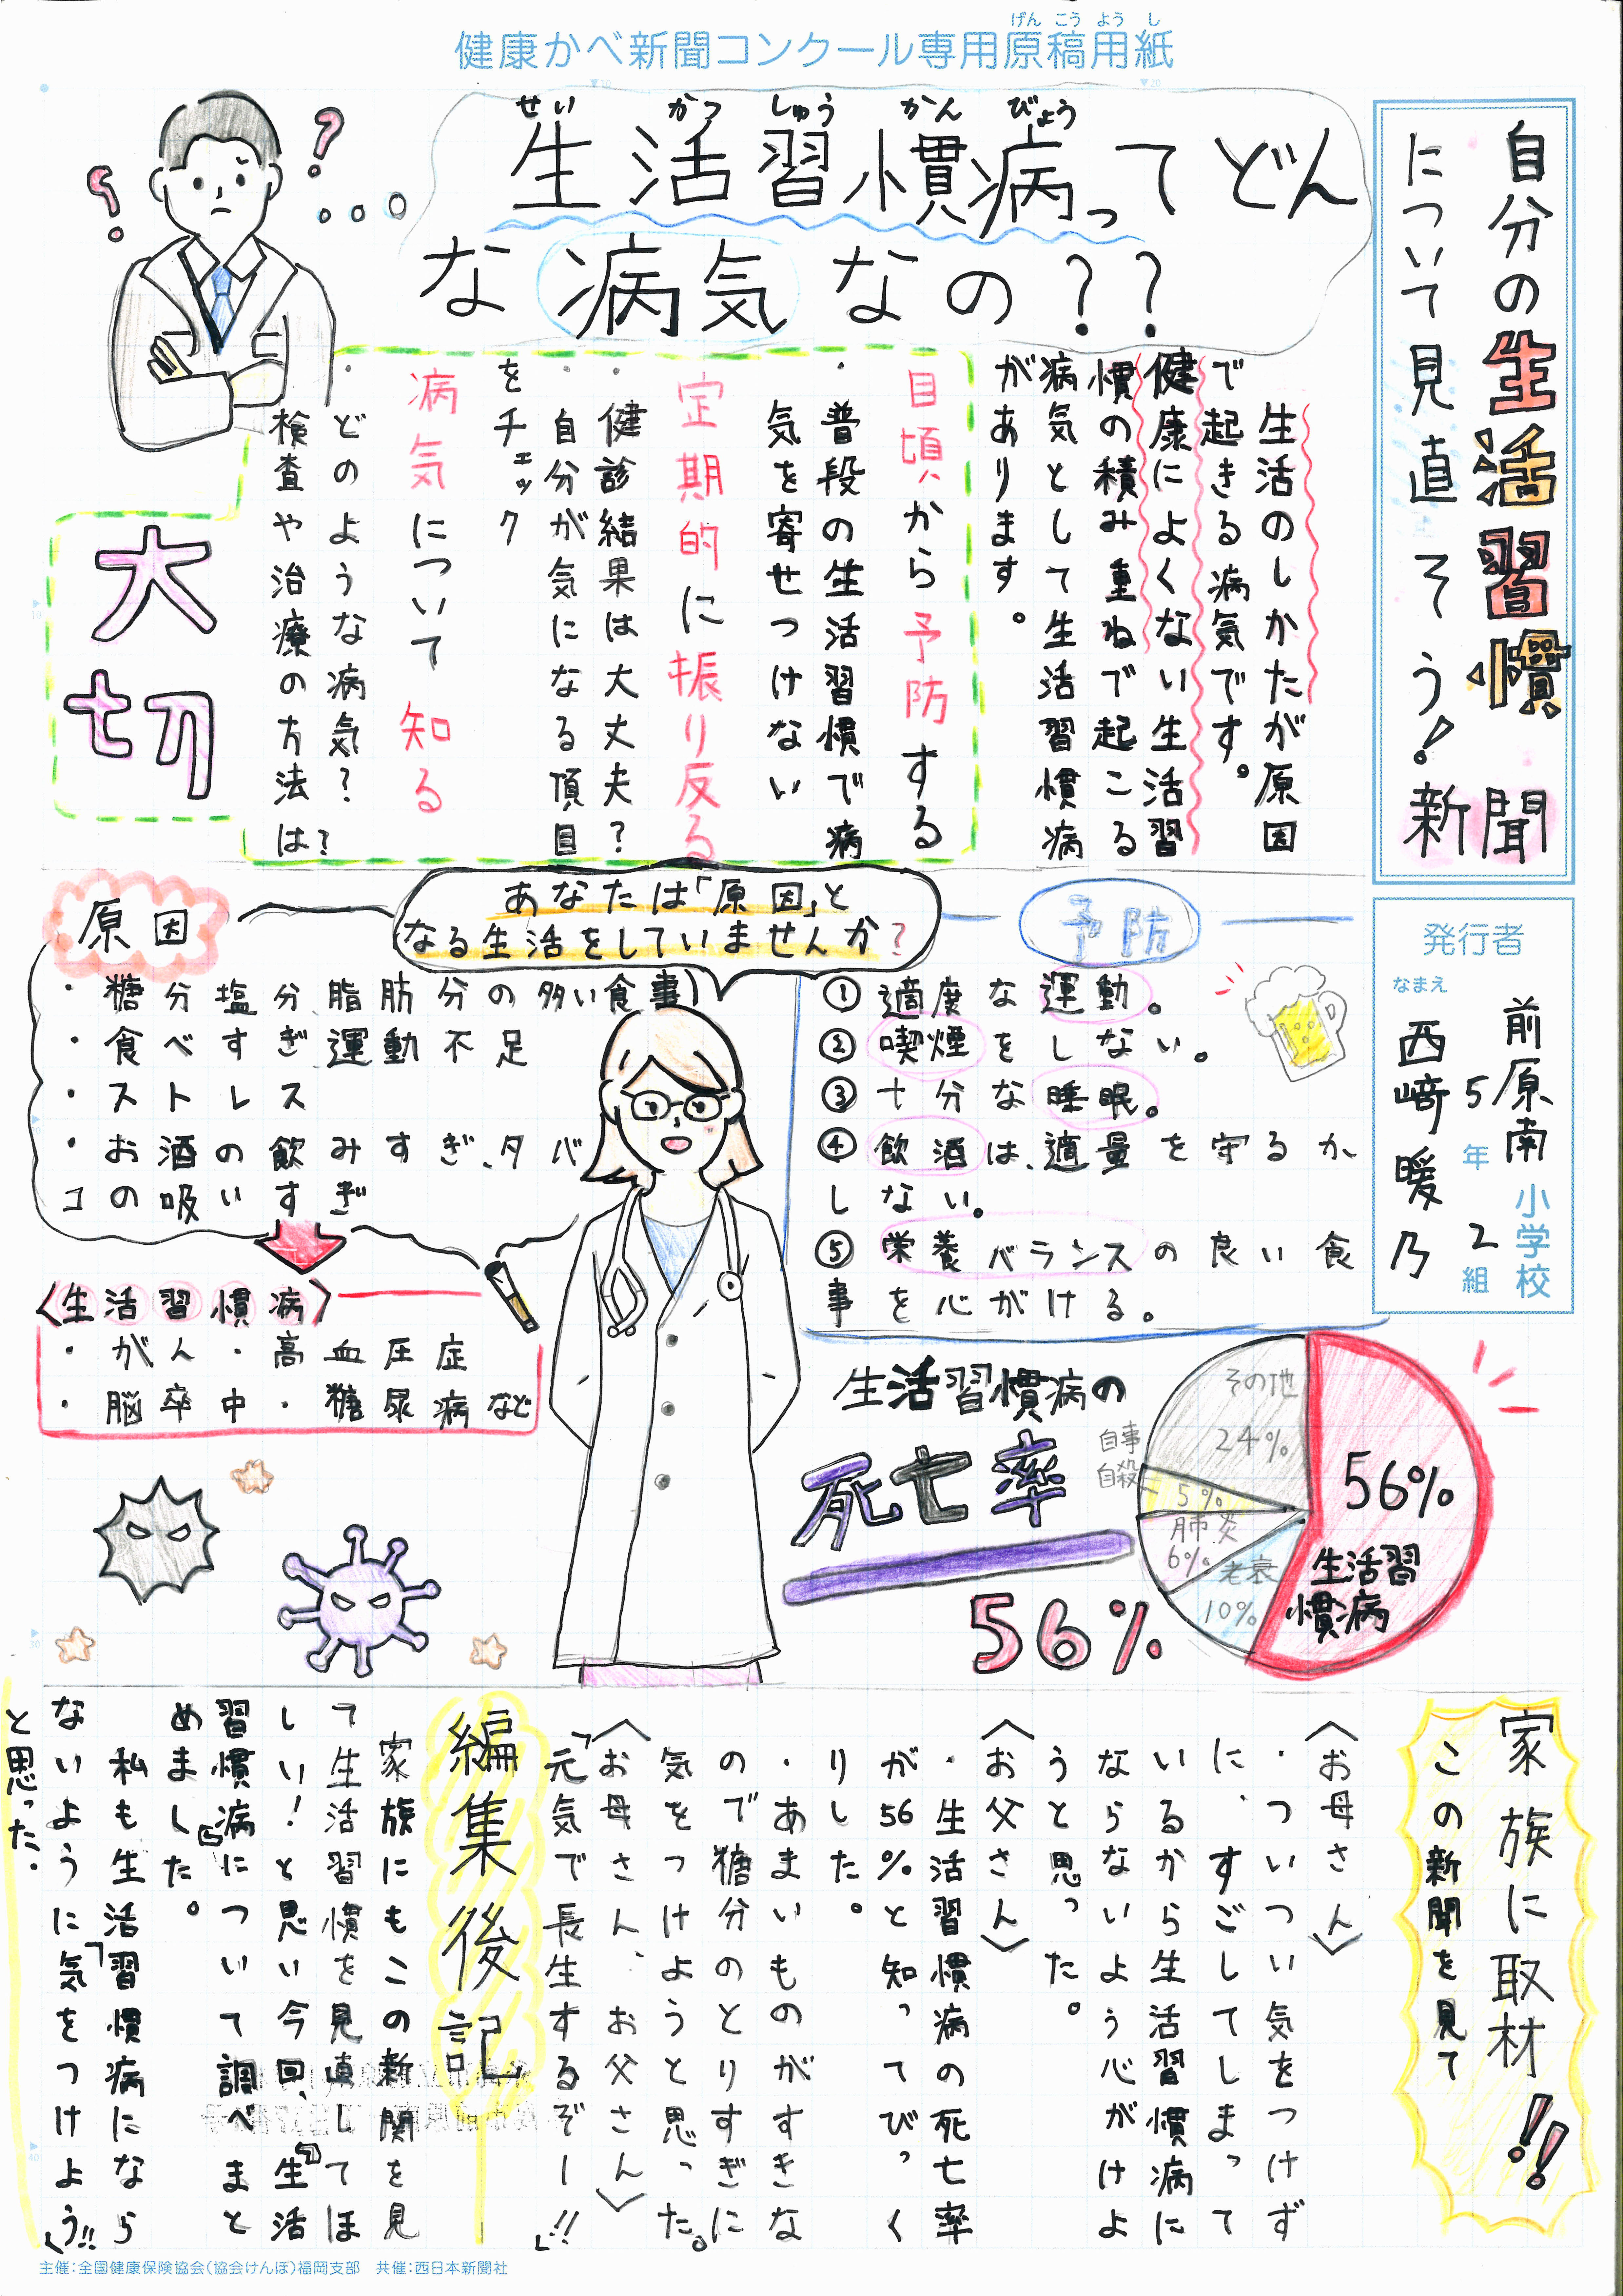 げんこうようし
健康かべ新聞コンクール専用原稿用紙
自分の生活習慣
について見直そう！新聞
発行者
なまえ
前原南小学校
5年2組
西﨑暖乃
せいかつしゅうかんびょう
生活習慣病ってどん
な病気なの？？
生活のしかたが原因
で起きる病気です。
健康によくない生活習
慣の積み重ねで起こる
病気として生活習慣病
があります。
目頃から予防する
・普段の生活習慣で病
気を寄せつけない
定期的に振り反る
・健診結果は大丈夫？
・自分が気になる頂目
をチェック
病気について知る
・どのような病気？
検査や治療の方法は？
大切
あなたは「原因」と
なる生活をしていませんか？
予防
①適度な運動。
②喫煙をしない。
③十分な睡眠。
④飲酒は、適量を守るか、
しない。
⑤栄養バランスの良い食
事を心がける。
原因
・糖分塩分脂肪分の多い食事
・食べすぎ、運動不足
・ストレス
・お酒の飲みすぎ、タバ
コの吸いすぎ
〈生活習慣病〉
・がん・高血圧症
・脳卒中・糖尿病など
生活習慣病の
死亡率
56%
その他
24%
自事
自殺
5%
肺炎
6%
老衰
10%
56%
生活習
慣病
家族に取材!!
この新聞を見て
〈お母さん〉
・ついつい気をつけず
に、すごしてしまって
いるから生活習慣病に
ならないよう心がけよ
うと思った。
〈お父さん〉
・生活習慣病の死亡率
が56%と知ってびっく
りした。
・あまいものがすきな
ので糖分のとりすぎに
気をつけようと思った。
〈お母さん、お父さん〉
「元気で長生するぞー!!」
編集後記
家族にもこの新聞を見
て生活習慣を見直してほ
しい！と思い今回、「生活
習慣病」について調べまと
めました。
私も生活習慣病になら
ないように「気をつけよう!!」
と思った。
主催：全国健康保険協会（協会けんぽ）福岡支部　共催：西日本新聞社